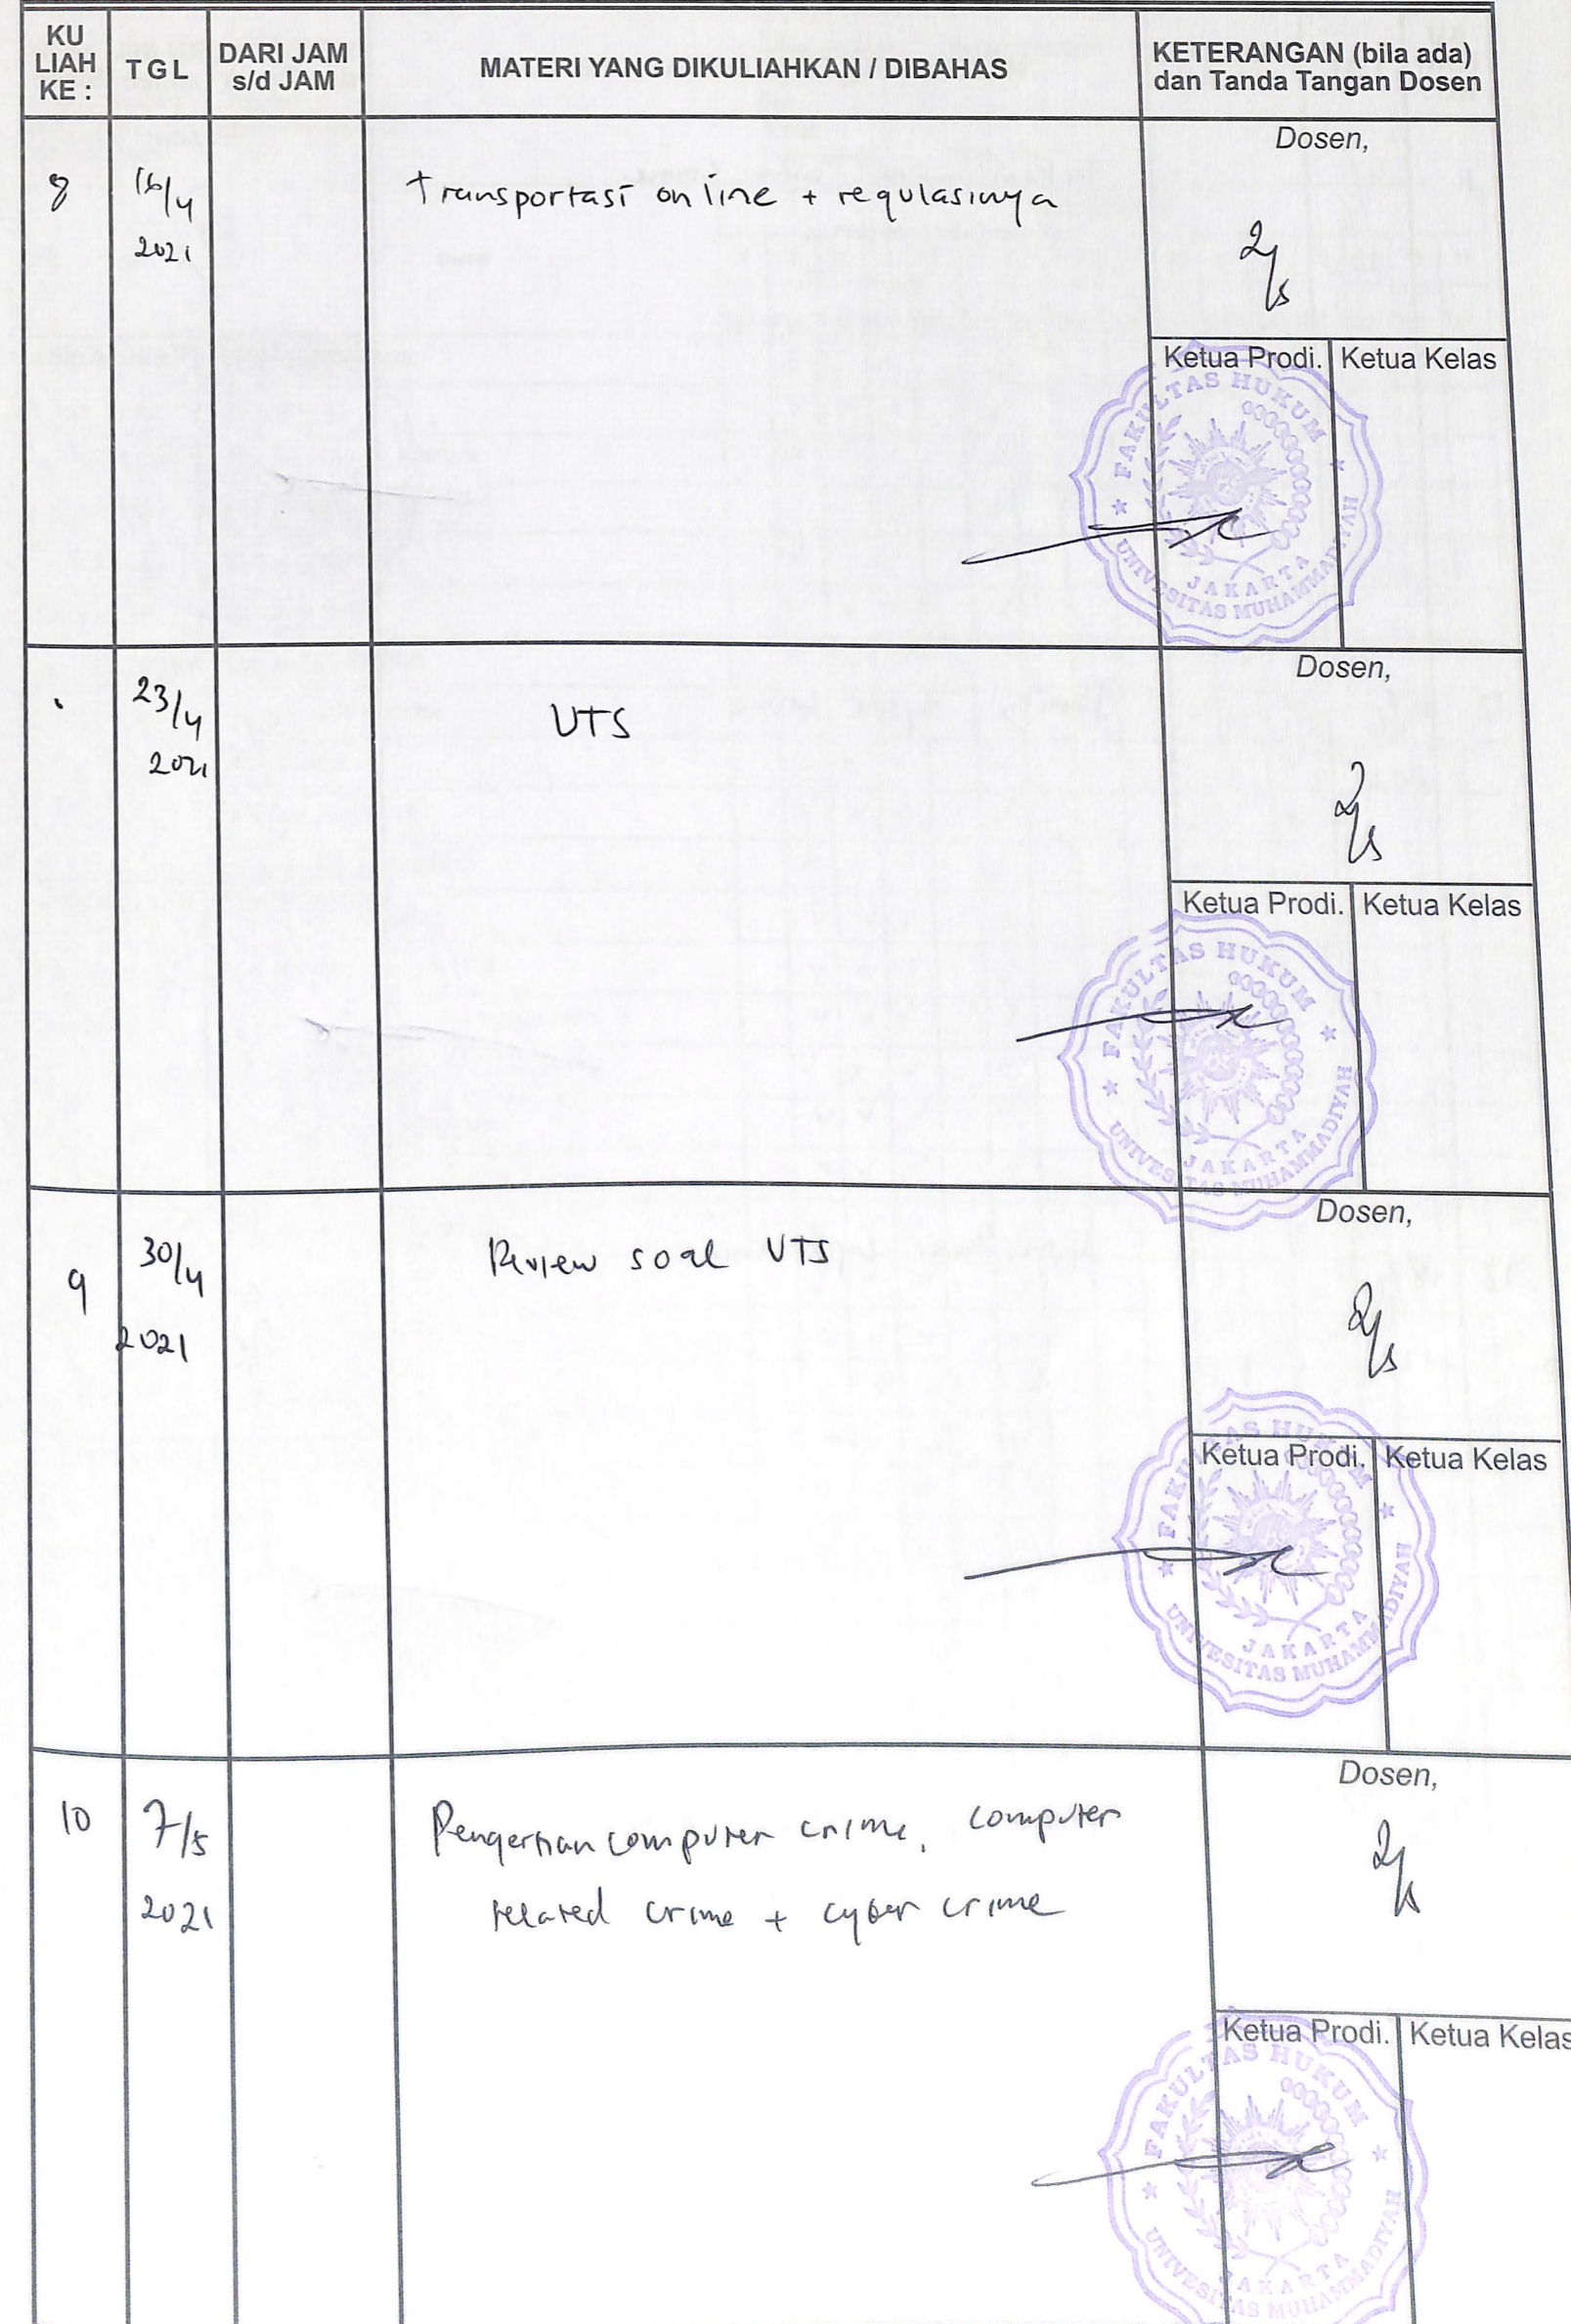 KU
LIAH
KE :
TGL
DARI JAM
s/d JAM
MATERI YANG DIKULIAHKAN / DIBAHAS
KETERANGAN (bila ada)
dan Tanda Tangan Dosen
8
16/4
2021
Transportasi online + regulasinya
Dosen,
Ketua Prodi.
Ketua Kelas
FAKULTAS HUKUM
JAKARTA
UNIVESITAS MUHAMMADIYAH
23/4
2021
UTS
Dosen,
Ketua Prodi.
Ketua Kelas
FAKULTAS HUKUM
JAKARTA
UNIVESITAS MUHAMMADIYAH
9
30/4
2021
Review soal UTS
Dosen,
Ketua Prodi.
Ketua Kelas
FAKULTAS HUKUM
JAKARTA
UNIVESITAS MUHAMMADIYAH
10
7/5
2021
Pengertian computer crime, computer
related crime + cyber crime
Dosen,
Ketua Prodi.
Ketua Kelas
FAKULTAS HUKUM
JAKARTA
UNIVESITAS MUHAMMADIYAH